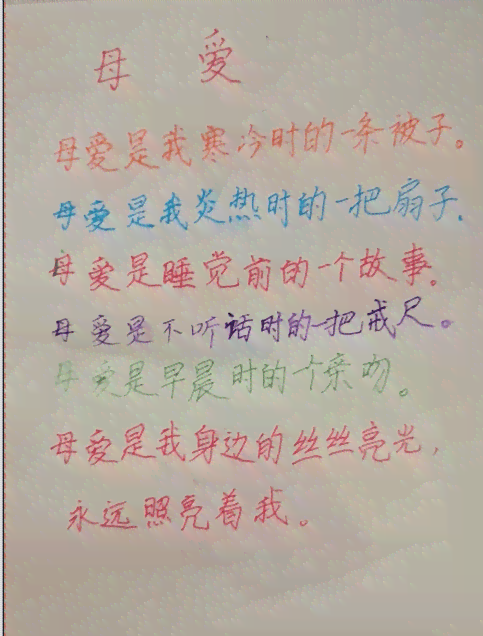 母爱
母爱是我寒冷时的一条被子。
母爱是我炎热时的一把扇子.
母爱是睡觉前的一个故事.
母爱是不听话时的一把戒尺。
母爱是早晨时的个亲吻。
母爱是我身边的丝丝亮光,
永远照亮着我。